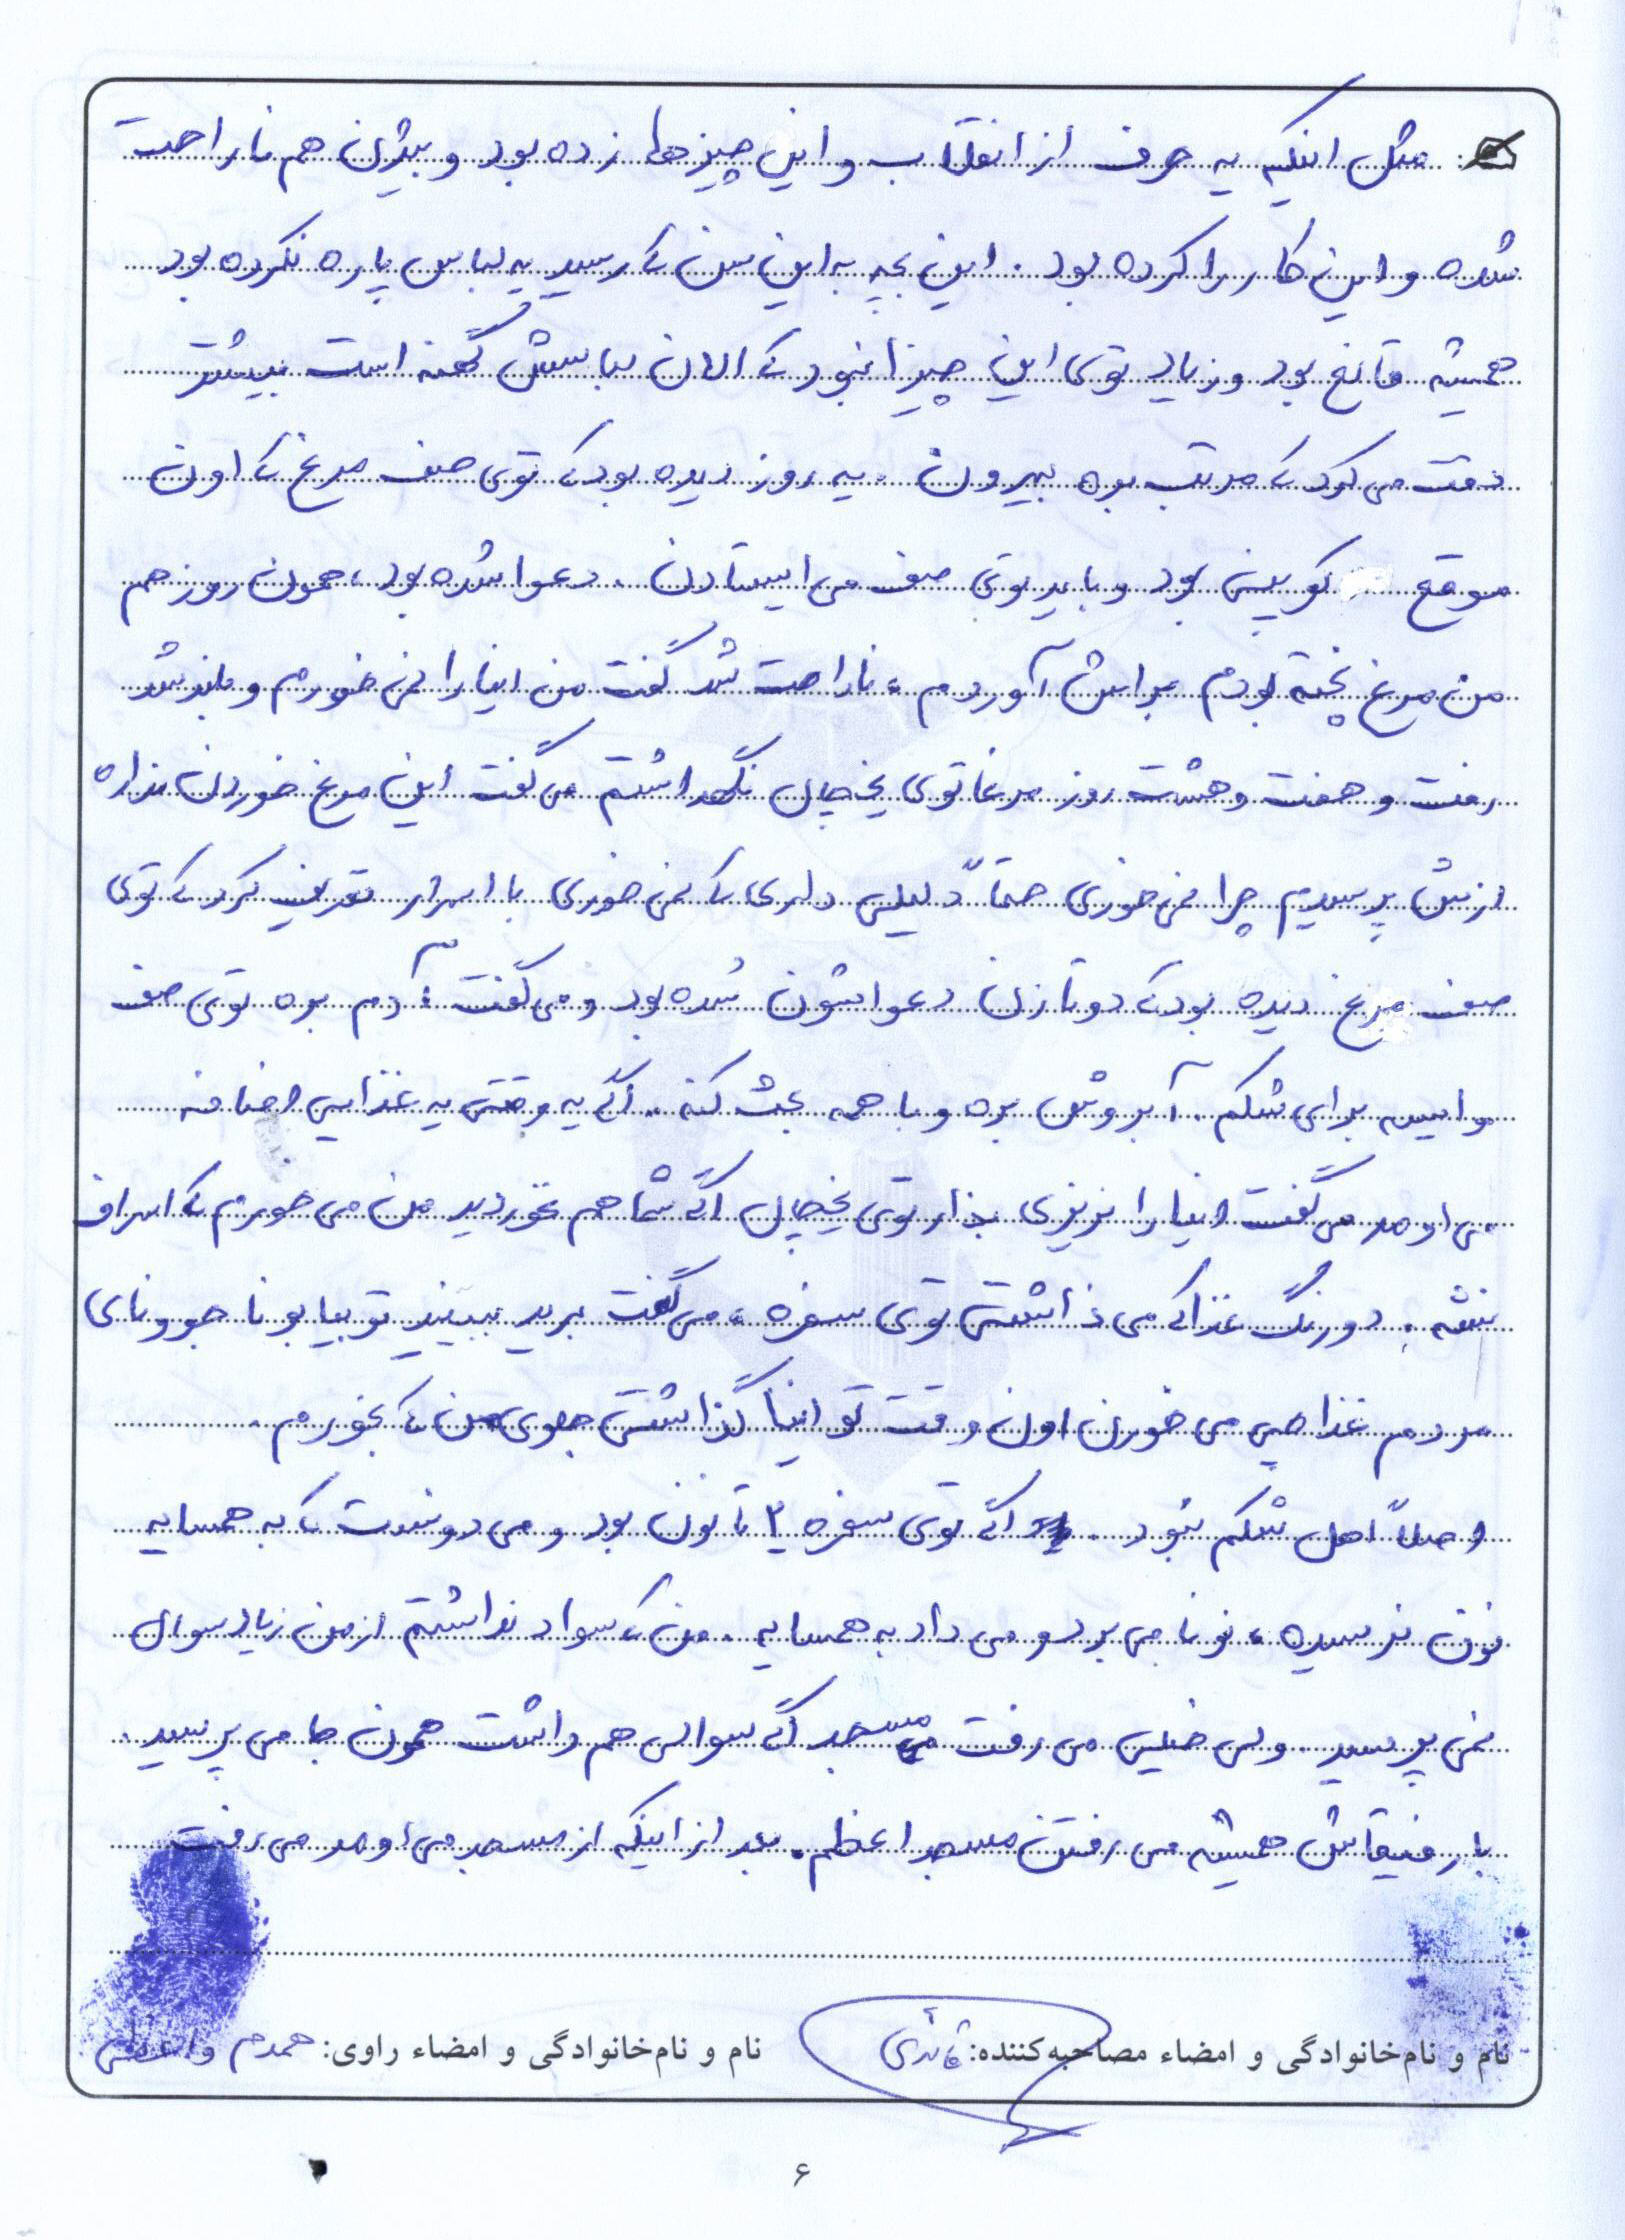 مثل اینکه یه حرف از انقلاب و این چیزها زده بود و بیژن هم ناراحت
شده و این کار را کرده بود. این بچه به این سن که رسید یه لباس پاره نکرده بود
همیشه قانع بود و زیاد توی این چیزا نبود که الان لباسش کهنه است بیشتر
دقت می کرد که مرتب بره بیرون. یه روز دیده بود که توی صف مرغ که اون
موقع کوپنی بود و باید توی صف می ایستادن. دعوا شده بود، همون روز هم
من مرغ پخته بودم براش آوردم، ناراحت شد گفت من اینا را نمی خورم و بلند شد
رفت و هفت و هشت روز مرغا توی یخچال نگهداشتم می گفت این مرغ خوردن نداره
ازش پرسیدم چرا نمی خوری حتماً دلیلی داری که نمی خوری با اسرار تعریف کرد که توی
صف مرغ دیده بود که دو تا زن دعواشون شده بود و می گفت: آدم بره توی صف
وایسه برای شکم. آبروش بره و با همه بحث کنه. اگه یه وقتی یه غذایی اضافه
می اومد می گفت اینا را نریزی بذار توی یخچال اگه شما هم نخوردید من می خورم که اسراف
نشه. دو رنگ غذا که می ذاشتی توی سفره، می گفت برید ببینید تو بیابونا جوونای
مردم غذا چی می خورن اون وقت تو اینا گذاشتی جلوی من که بخورم.
اصلاً اهل شکم نبود. اگه توی سفره ۲ تا نون بود و می دونست که به همسایه
نون نرسیده، نونا می برد و می داد به همسایه. من که سواد نداشتم از من زیاد سوال
نمی پرسید. ولی خیلی می رفت مسجد اگه سوالی هم داشت همون جا می پرسید.
با رفیقاش همیشه می رفتن مسجد اعظم. بعد از اینکه از مسجد می اومد می رفت
نام و نام‌خانوادگی و امضاء مصاحبه‌کننده: نام و نام‌خانوادگی و امضاء راوی: همدم واعظی
۶